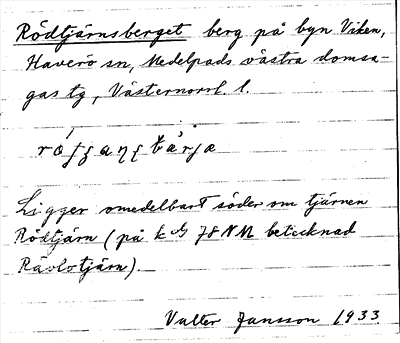 Rödtjärnsberget berg på byn Viken,
Haverö sn, Medelpads västra domsa-
gas tg, Västernorrl. l.
Ligger omedelbart söder om tjärnen
Rödtjärn (på k. bl. 78 NM betecknad
Rävlotjärn).
Valter Jansson 1933.